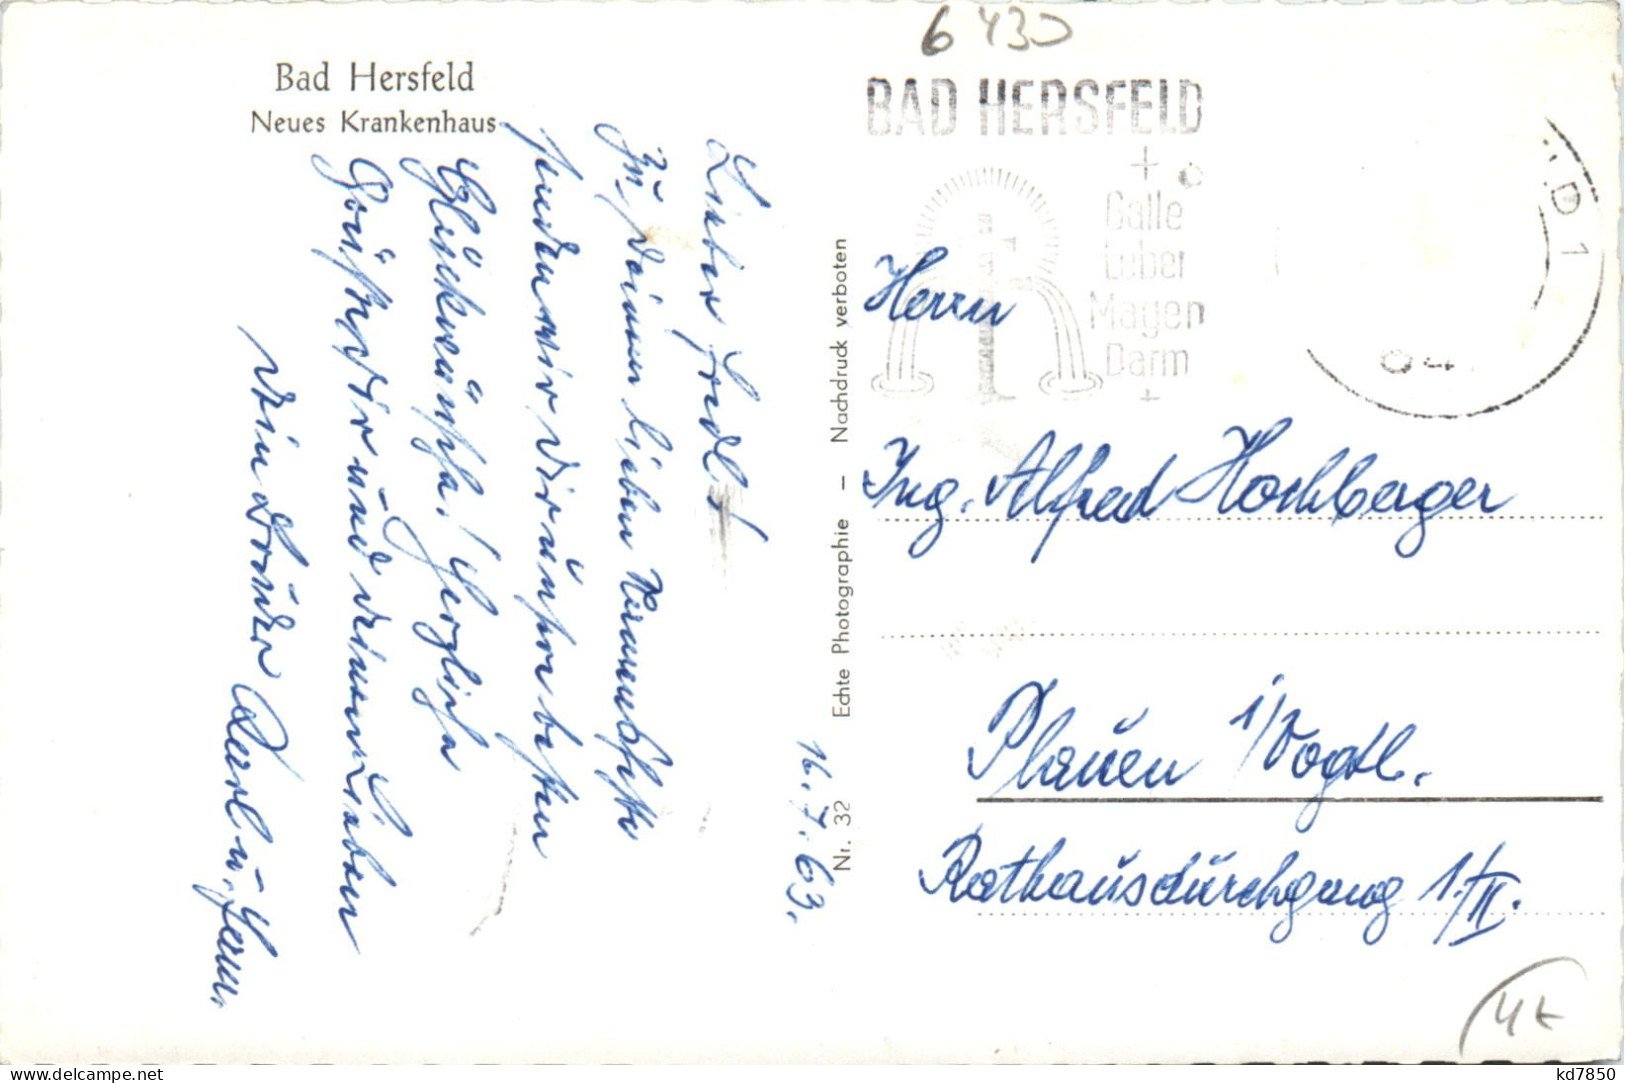 6430
Bad Hersfeld
Neues Krankenhaus
16.7.63.
Lieber Fredl!
Zu Deinem lieben Namensfeste
senden wir Dir unsre besten
Glückwünsche! Herzliche
Grüße Dir und deinen Lieben
Dein Bruder Karl u. Fam.
Nr. 32 Echte Photographie – Nachdruck verboten
BAD HERSFELD
+
Galle
Leber
Magen
Darm
+
D 1
Herrn
Ing. Alfred Hochberger
Plauen i/Vogtl.
Rathausdurchgang 1./II.
kd7850